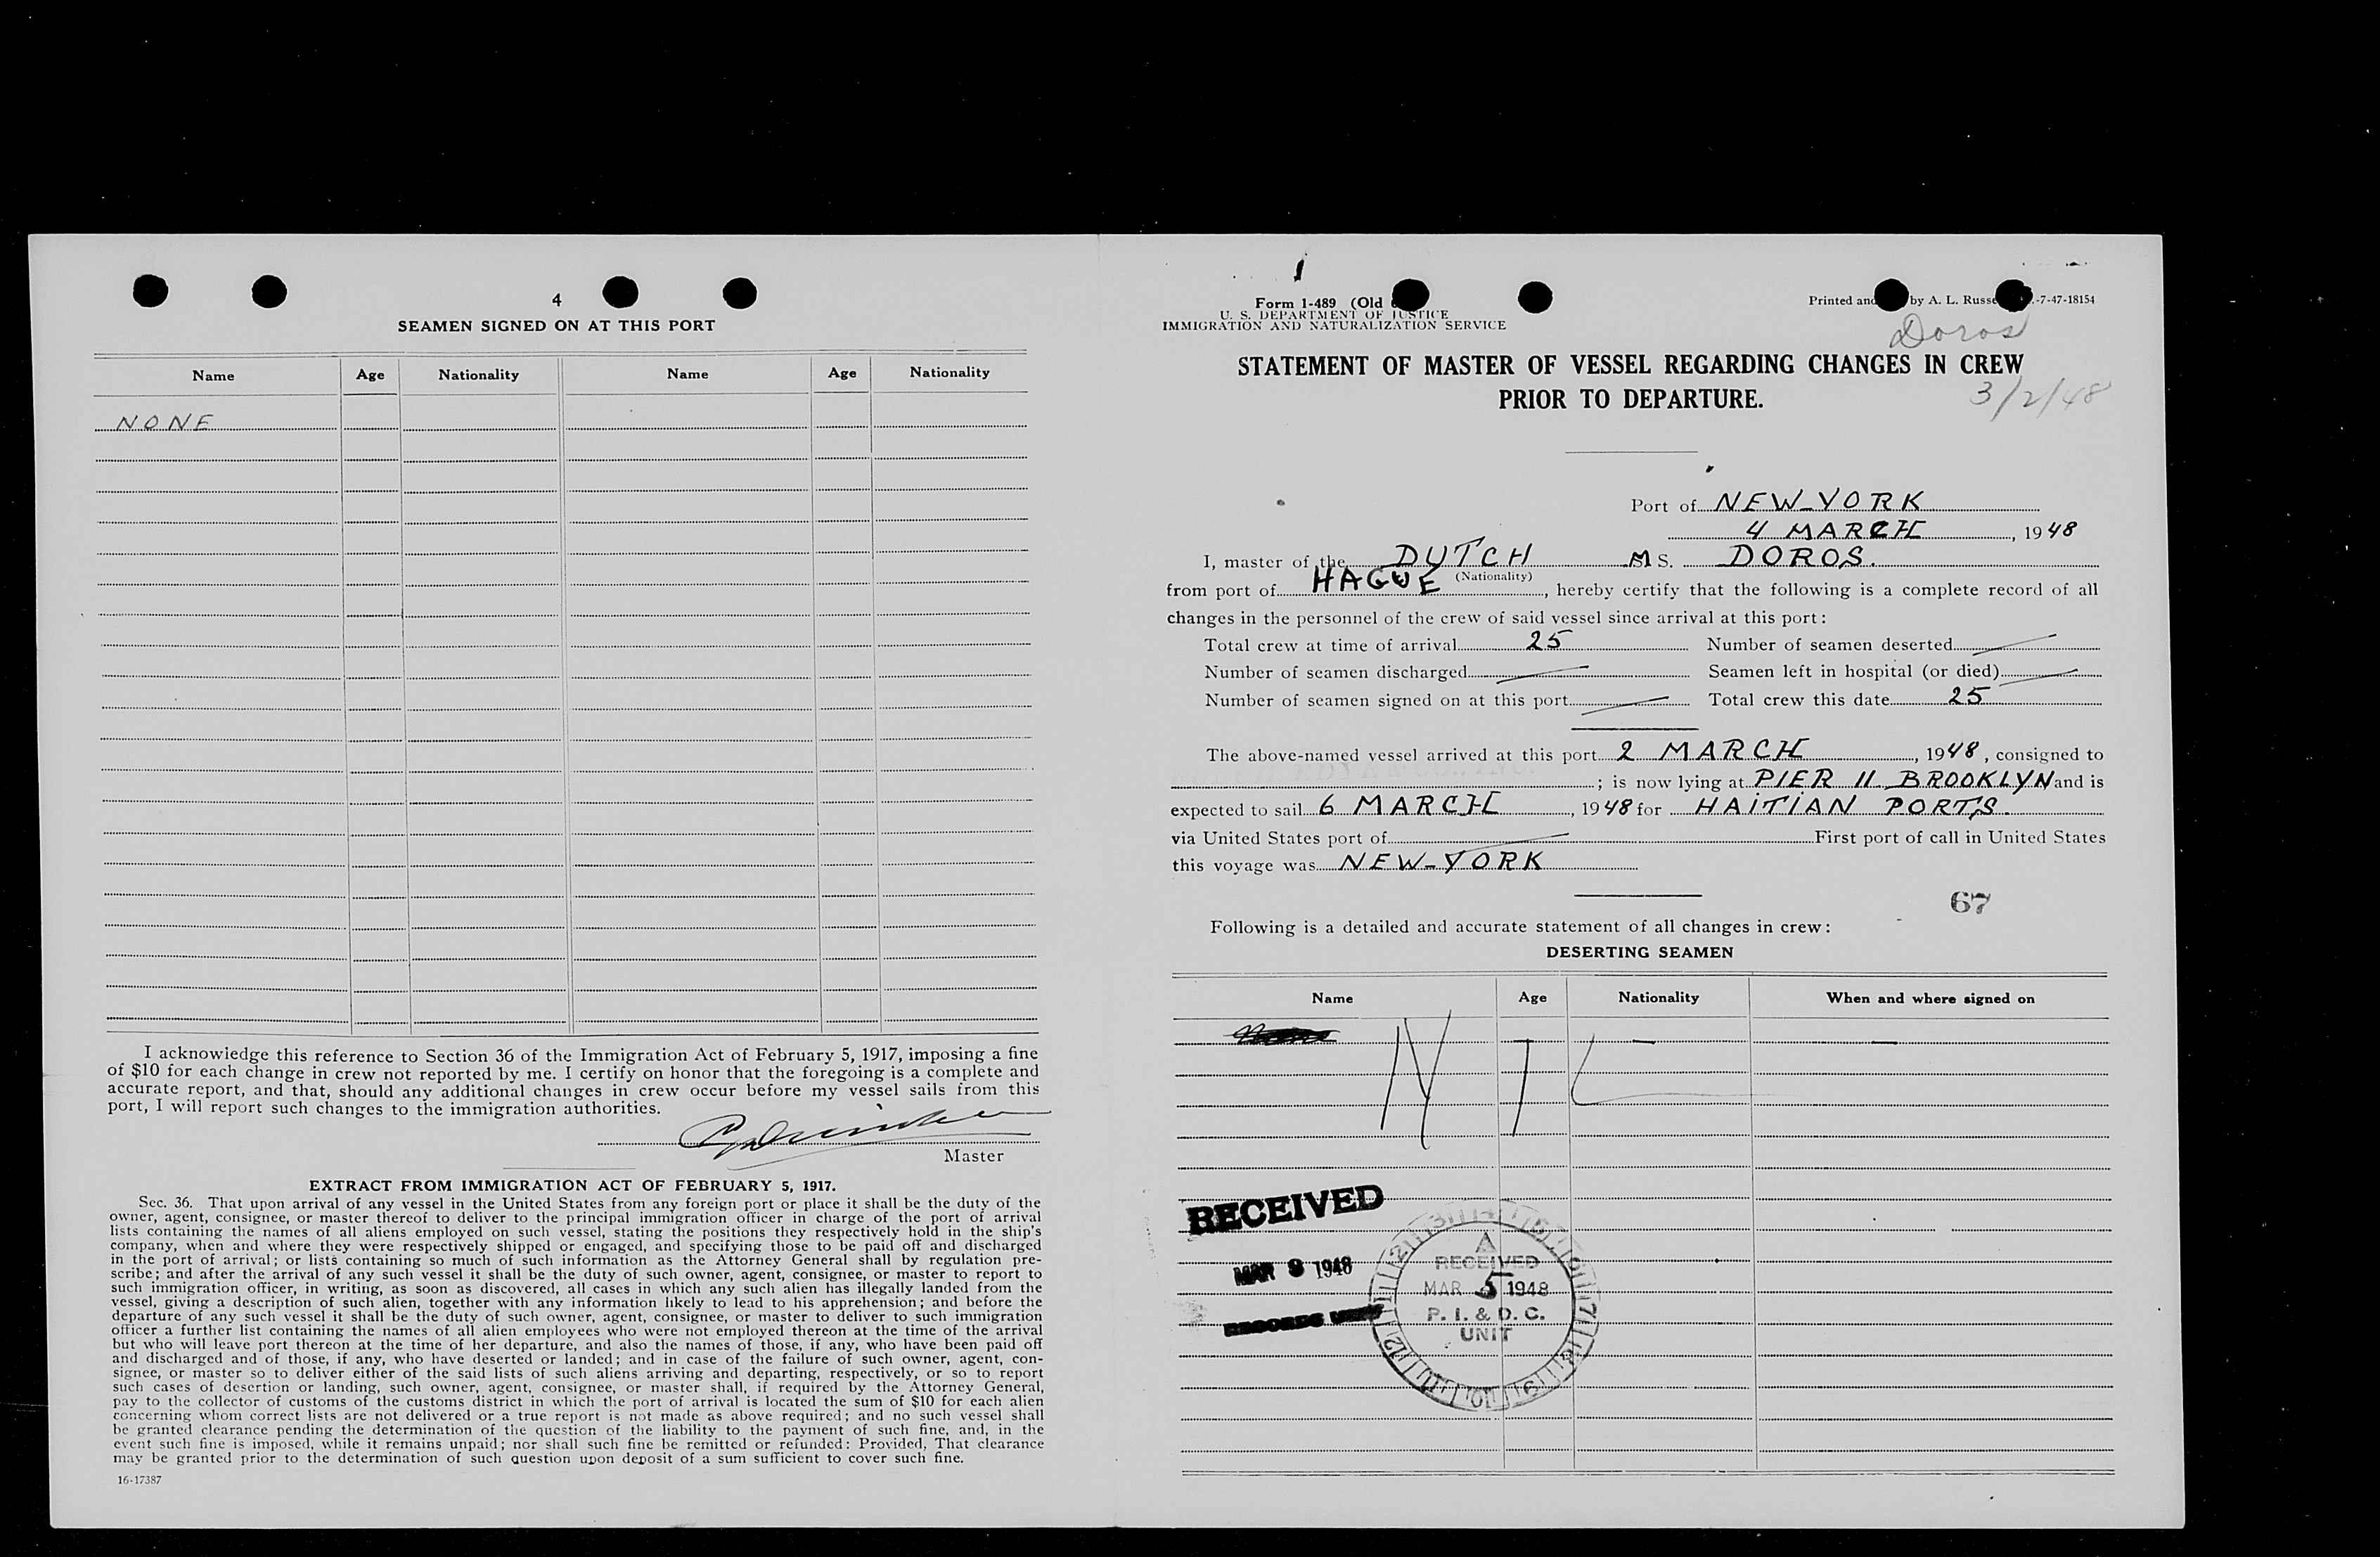 4
SEAMEN SIGNED ON AT THIS PORT
Name Age Nationality Name Age Nationality
NONE
I acknowledge this reference to Section 36 of the Immigration Act of February 5, 1917, imposing a fine
of $10 for each change in crew not reported by me. I certify on honor that the foregoing is a complete and
accurate report, and that, should any additional changes in crew occur before my vessel sails from this
port, I will report such changes to the immigration authorities.
Master
EXTRACT FROM IMMIGRATION ACT OF FEBRUARY 5, 1917.
Sec. 36. That upon arrival of any vessel in the United States from any foreign port or place it shall be the duty of the
owner, agent, consignee, or master thereof to deliver to the principal immigration officer in charge of the port of arrival
lists containing the names of all aliens employed on such vessel, stating the positions they respectively hold in the ship's
company, when and where they were respectively shipped or engaged, and specifying those to be paid off and discharged
in the port of arrival; or lists containing so much of such information as the Attorney General shall by regulation pre-
scribe; and after the arrival of any such vessel it shall be the duty of such owner, agent, consignee, or master to report to
such immigration officer, in writing, as soon as discovered, all cases in which any such alien has illegally landed from the
vessel, giving a description of such alien, together with any information likely to lead to his apprehension; and before the
departure of any such vessel it shall be the duty of such owner, agent, consignee, or master to deliver to such immigration
officer a further list containing the names of all alien employees who were not employed thereon at the time of the arrival
but who will leave port thereon at the time of her departure, and also the names of those, if any, who have been paid off
and discharged and of those, if any, who have deserted or landed; and in case of the failure of such owner, agent, con-
signee, or master so to deliver either of the said lists of such aliens arriving and departing, respectively, or so to report
such cases of desertion or landing, such owner, agent, consignee, or master shall, if required by the Attorney General,
pay to the collector of customs of the customs district in which the port of arrival is located the sum of $10 for each alien
concerning whom correct lists are not delivered or a true report is not made as above required; and no such vessel shall
be granted clearance pending the determination of the question of the liability to the payment of such fine, and, in the
event such fine is imposed, while it remains unpaid; nor shall such fine be remitted or refunded: Provided, That clearance
may be granted prior to the determination of such question upon deposit of a sum sufficient to cover such fine.
16-17387
Form I-489 (Old
U. S. DEPARTMENT OF JUSTICE
IMMIGRATION AND NATURALIZATION SERVICE
Printed and by A. L. Russe -7-47-18154
Doros
STATEMENT OF MASTER OF VESSEL REGARDING CHANGES IN CREW
PRIOR TO DEPARTURE.
3/2/48
Port of NEW-YORK
4 MARCH, 1948
I, master of the DUTCH MS. DOROS.
(Nationality)
from port of HAGUE, hereby certify that the following is a complete record of all
changes in the personnel of the crew of said vessel since arrival at this port:
Total crew at time of arrival 25 Number of seamen deserted
Number of seamen discharged Seamen left in hospital (or died)
Number of seamen signed on at this port Total crew this date 25
The above-named vessel arrived at this port 2 MARCH, 1948, consigned to
; is now lying at PIER 11 BROOKLYN and is
expected to sail 6 MARCH, 1948 for HAITIAN PORTS.
via United States port of First port of call in United States
this voyage was NEW-YORK
67
Following is a detailed and accurate statement of all changes in crew:
DESERTING SEAMEN
Name Age Nationality When and where signed on
N I L
RECEIVED
MAR 9 1948
RECORDS
A
RECEIVED
MAR 5 1948
P. I. & D. C.
UNIT